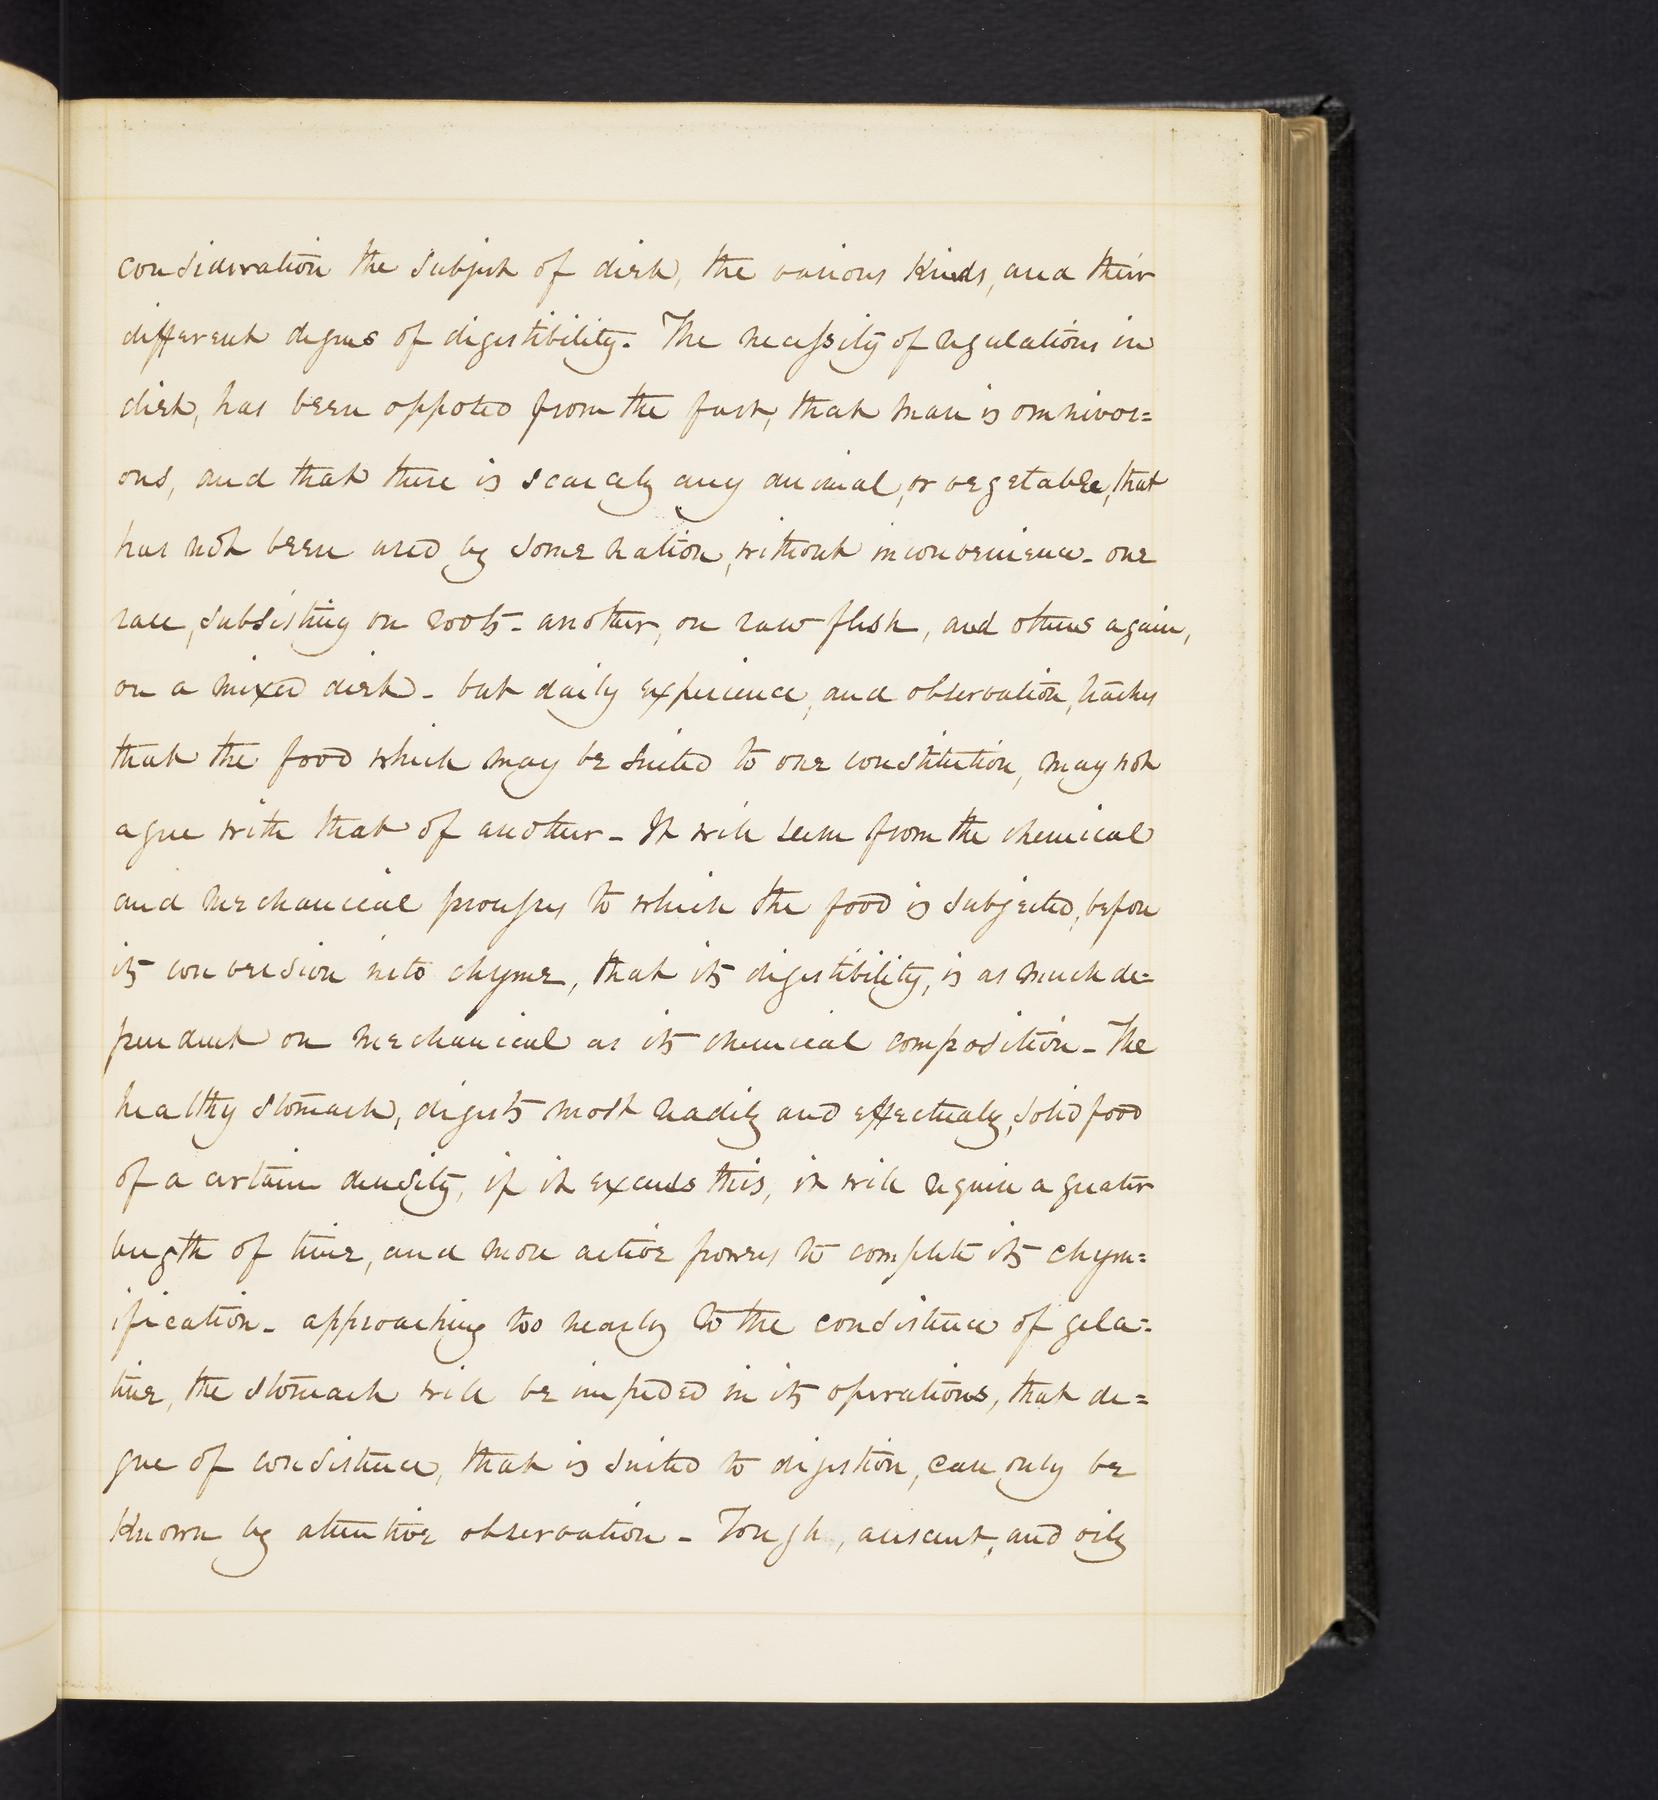 consideration the subject of diet, the various kinds, and their
different degrees of digestibility. The necessity of regulations in
diet, has been opposed from the fact, that man is omnivor=
ous, and that there is scarcely any animal, or vegetable, that
has not been used by some nation, without inconvenience - one
race, subsisting on roots - another, on raw flesh, and others again,
on a mixed diet - but daily experience, and observation, teaches
that the food which may be suited to one constitution, may not
agree with that of another - It will seem from the chemical
and mechanical processes to which the food is subjected, before
its conversion into chyme, that its digestibility, is as much de=
pendent on mechanical as its chemical composition - The
healthy stomach, digests most readily and effectualy, solid food
of a certain density, if it exceeds this, it will require a greater
length of time, and more active powers to complete its chym=
ification - approaching too nearly to the consistence of gela=
tine, the stomach will be impeded in its operations, that de=
gree of consistence, that is suited to digestion, can only be
known by attentive observation - Tough, and oily